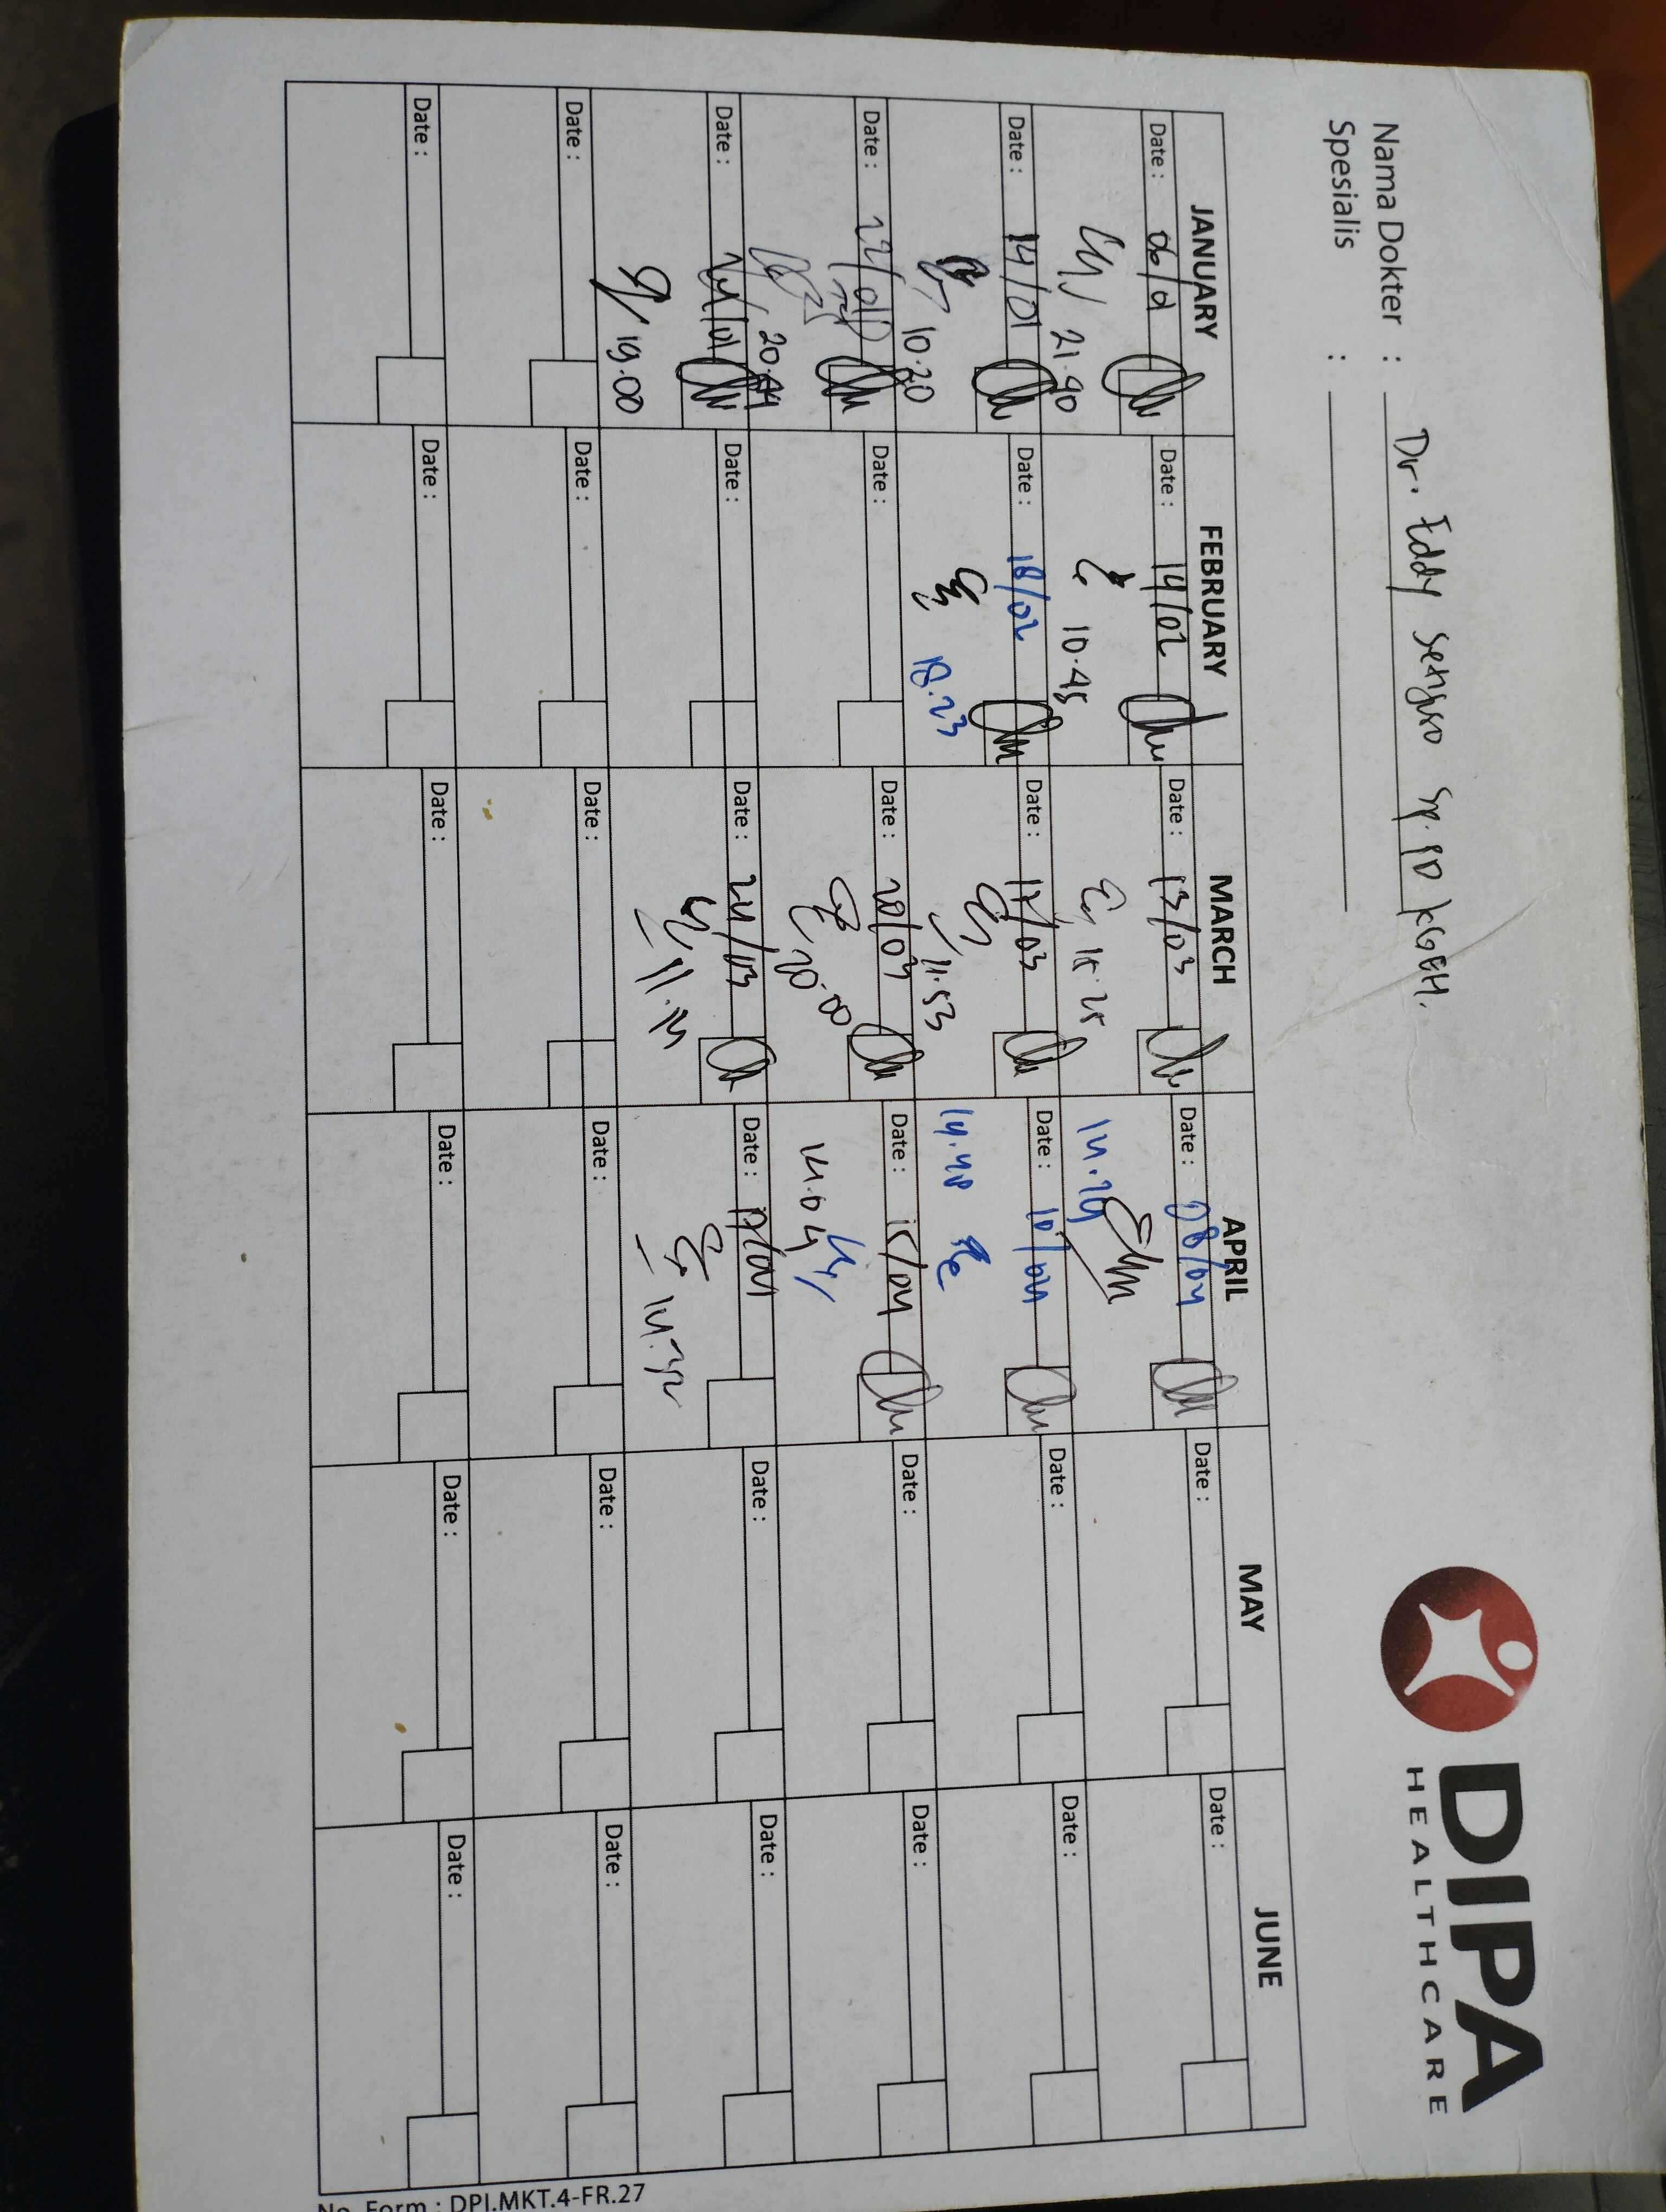 DIPA
HEALTHCARE
Nama Dokter : Dr. Eddy Sp.PD KGEH.
Spesialis :
JANUARY FEBRUARY MARCH APRIL MAY JUNE
Date : 06/01 Date : 14/02 Date : 13/03 Date : 08/04 Date : Date :
21.40 10.45 14.29
Date : 14/01 Date : 18/02 Date : Date : 10/04 Date : Date :
10.20 18.23 11.53 14.40
Date : 22/01 Date : Date : 20/03 Date : 15/04 Date : Date :
20.00 14.04
Date : 24/01 Date : Date : 24/03 Date : 17/04 Date : Date :
19.00 14.32
Date : Date : Date : Date : Date : Date :
Date : Date : Date : Date : Date : Date :
No. Form : DPI.MKT.4-FR.27